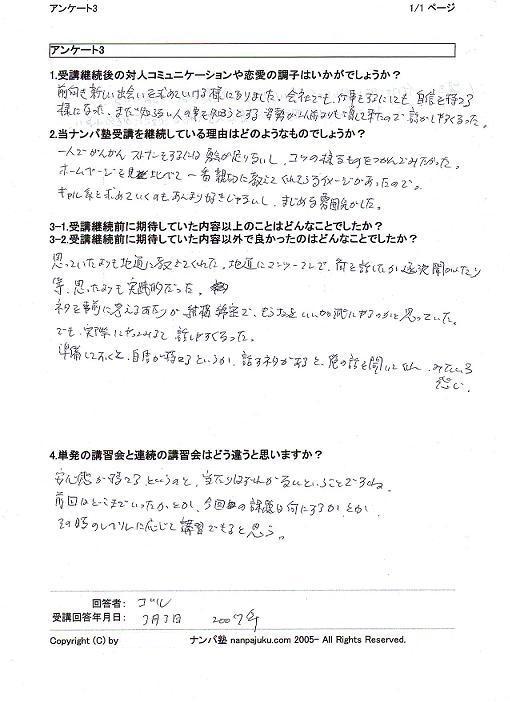 アンケート3
1/1 ページ
アンケート3
1.受講継続後の対人コミュニケーションや恋愛の調子はいかがでしょうか?
前向き新しい出会いを求めていける様になりました。会社でも、仕事をするにしても自信を持てる
様になった。まだ知らない人の事を知ろうとする姿勢が以前よりも増して来たので話がしやすくなった。
2.当ナンパ塾受講を継続している理由はどのようなものでしょうか?
一人でガンガンストナンをするには勇気が足りないし、コツの様なものをつかんでみたかった。
ホームページを見比べて一番親切に教えてくれているイメージがあったので。
ギャル系を求めていくのもあんまり好きじゃないし、まじめな雰囲気がした。
3-1.受講継続前に期待していた内容以上のことはどんなことでしたか?
3-2.受講継続前に期待していた内容以外で良かったのはどんなことでしたか?
思っていたよりも地道に教えてくれた。地道にマンツーマンで、何を話したか逐次聞かれたり
等、思ったよりも実践的だった。
ネタを事前に考えるあたりが結構綿密で、もうちょっといいかげんにやるのかと思っていた。
でも、実際にやってみると話しやすくなった。
準備しておくと、自信が持てるというか、話すネタがあると、俺の話を聞いてくれ、みたいな
感じ。
4.単発の講習会と連続の講習会はどう違うと思いますか?
安心感が持てるというのと、当たりはずれがないということですかね。
前回はどこまでいったか、とか、今回の課題は何にするか、とか、
その時のレベルに応じて講習できると思う。
回答者: ゴル
受講回答年月日: 3月3日 2007年
Copyright (C) by ナンパ塾 nanpajuku.com 2005- All Rights Reserved.